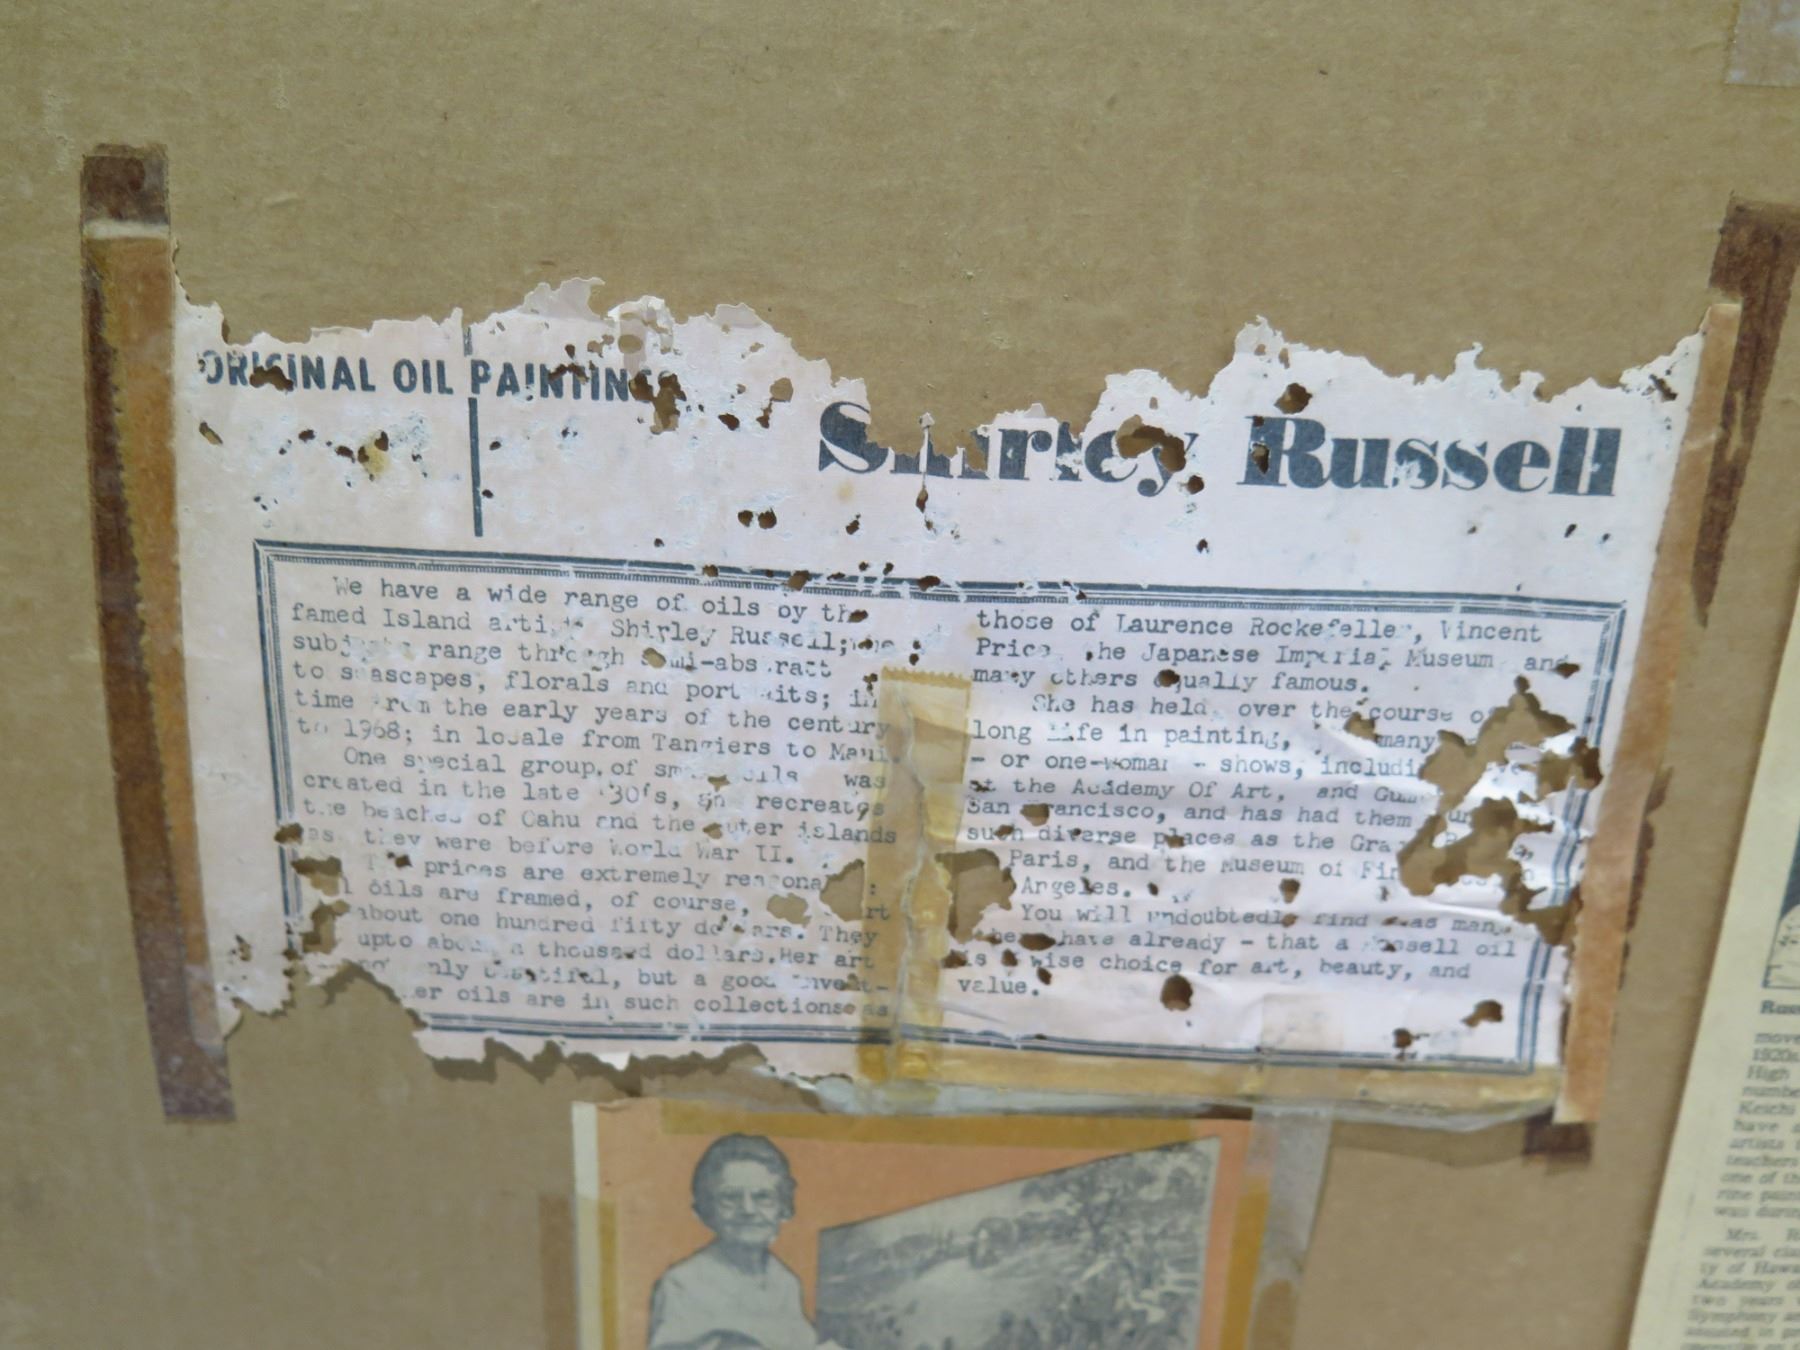 ORIGINAL OIL PAINTINGS
Shirley Russell
We have a wide range of oils by the
famed Island artist, Shirley Russell; the
subjects range through semi-abstract
to seascapes, florals and portraits; in
time from the early years of the century
to 1968; in locale from Tangiers to Maui.
One special group of small oils was
created in the late '30's, and recreates
the beaches of Oahu and the outer islands
as they were before World War II.
The prices are extremely reasonable:
oils are framed, of course,
about one hundred fifty dollars. They
upto about a thousand dollars. Her art
only beautiful, but a good invest-
er oils are in such collections as
those of Laurence Rockefeller, Vincent
Price, the Japanese Imperial Museum and
many others equally famous.
She has held, over the course of
long life in painting, many
- or one-woman - shows, includi
at the Academy Of Art, and Gum
San Francisco, and has had them
such diverse places as the Gra
Paris, and the Museum of Fin
Angeles.
You will undoubtedly find - as many
have already - that a Russell oil
is a wise choice for art, beauty, and
value.
Russ
move
1920s
High
numbe
Keichi
have a
artists
teachers
one of th
rine pain
was durin
Mrs. R
several cla
ty of Hawa
Academy o
two years
Symphony a